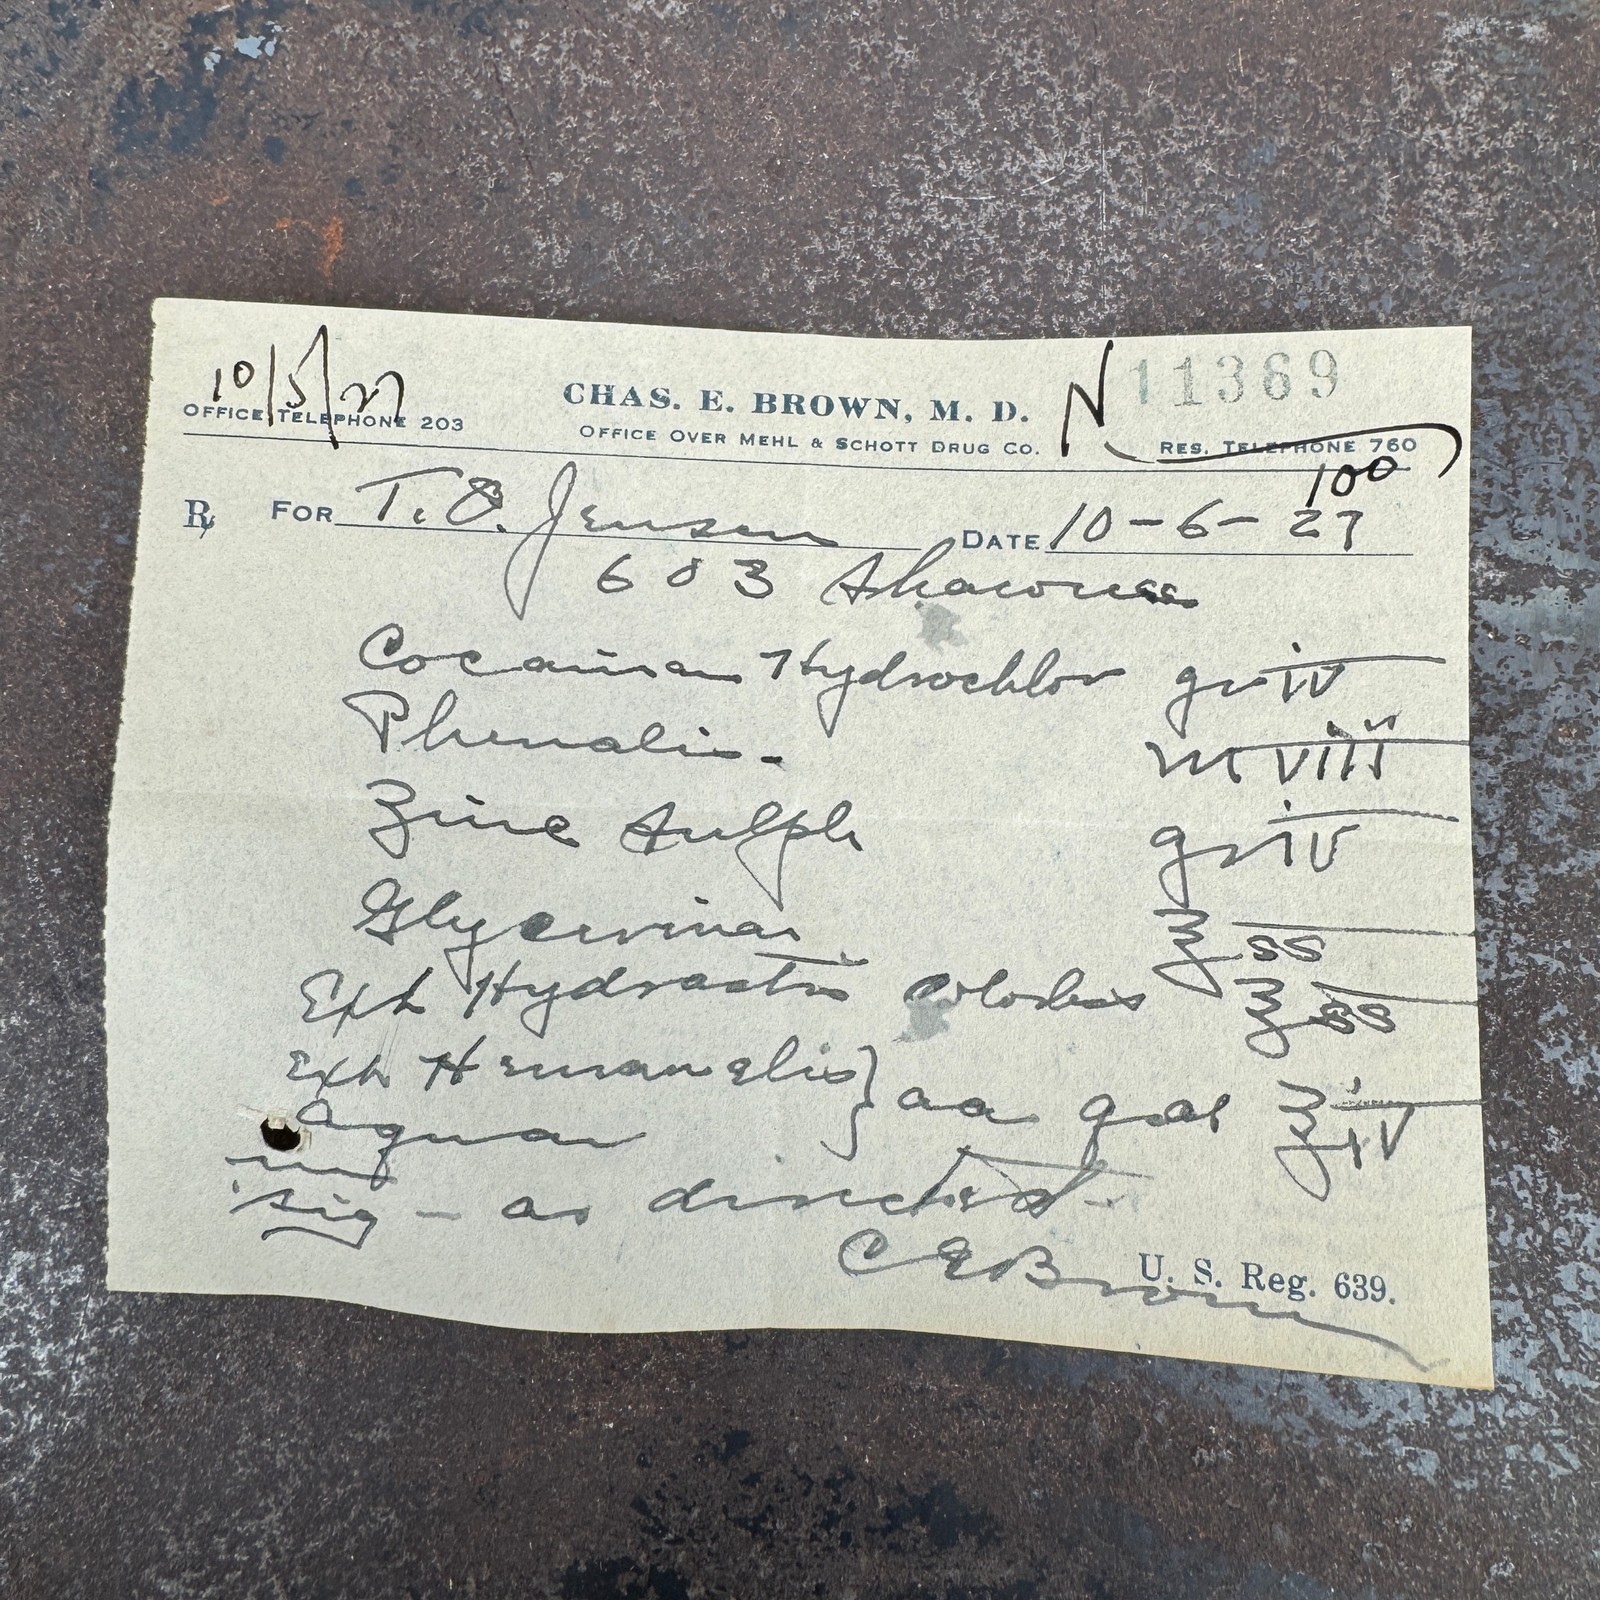 10/5/27
CHAS. E. BROWN, M. D.
N 11369
OFFICE TELEPHONE 203
OFFICE OVER MEHL & SCHOTT DRUG CO.
RES. TELEPHONE 760
100
℞ FOR T. O. Jensen DATE 10-6-27
603 Shawnee
Cocainae Hydrochlor gr iv
Phenolis - m viii
Zinc Sulph gr iv
Glycerinae ℥ ss
Ext Hydrastis Colorless ℥ ss
Ext Hamamelis } aa q ad ℥ iv
Aquae
Sig - as directed -
C E Brown
U. S. Reg. 639.